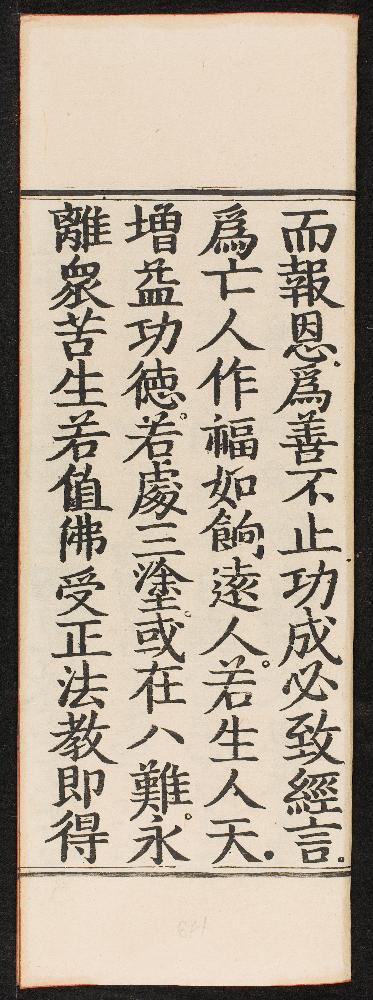 而報恩爲善不止功成必致經言。
爲亡人作福如餉遠人。若生人天。
増益功徳。若處三塗。或在八難。永
離衆苦生若值佛受正法教即得